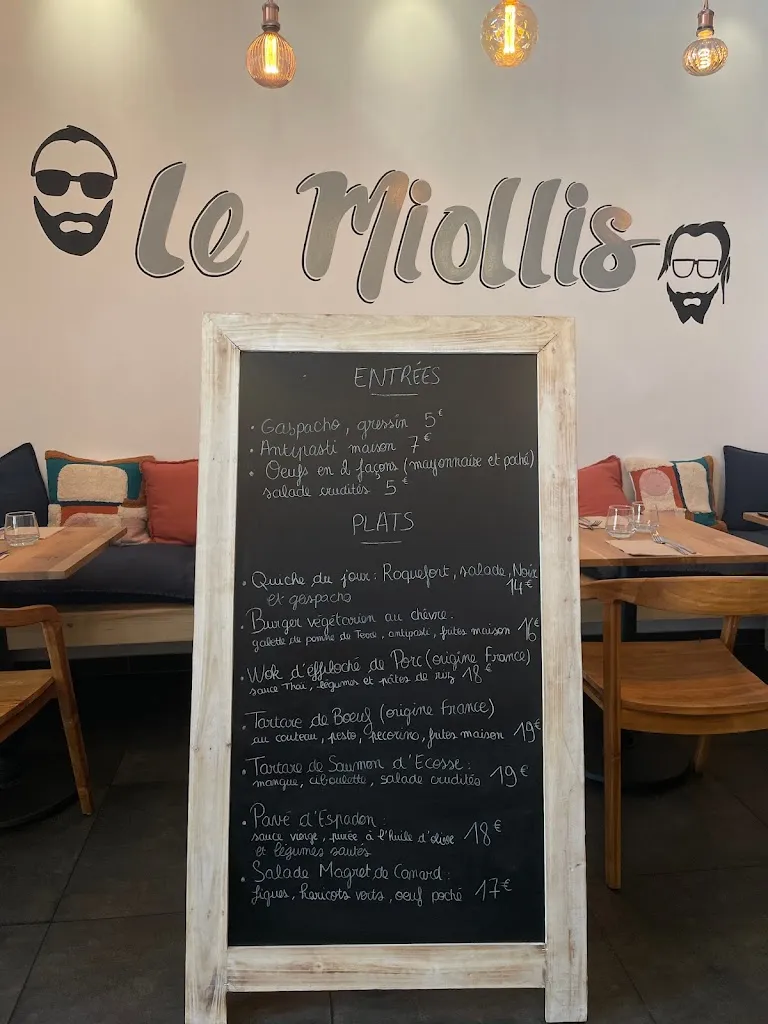 Le Miollis
ENTRÉES
• Gaspacho, gressin 5€
• Antipasti maison 7€
• Oeufs en 2 façons (mayonnaise et poché)
salade crudités 5€
PLATS
• Quiche du jour : Roquefort, salade, Noix
et gaspacho 14€
• Burger végétarien au chèvre :
galette de pomme de Terre, antipasti, frites maison 16€
• Wok d'éffiloché de Porc (origine France)
sauce Thaï, légumes et pâtes de riz 18€
• Tartare de Boeuf (origine France)
au couteau, pesto, pecorino, frites maison 19€
• Tartare de Saumon d'Ecosse :
mangue, ciboulette, salade crudités 19€
• Pavé d'Espadon :
sauce vierge, purée à l'huile d'olive 18€
et légumes sautés
• Salade Magret de Canard :
figues, haricots verts, oeuf poché 17€